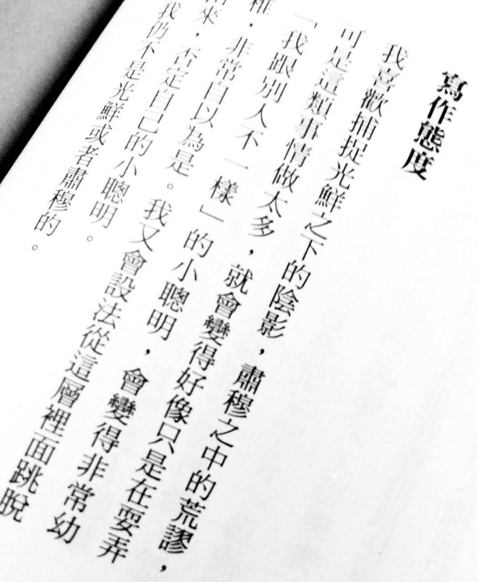 寫作態度
我喜歡捕捉光鮮之下的陰影，肅穆之中的荒謬，
可是這類事情做太多，就會變得好像只是在耍弄
「我跟別人不一樣」的小聰明，會變得非常幼
稚，非常自以為是。我又會設法從這層裡面跳脫
出來，否定自己的小聰明。
我仍不是光鮮或者肅穆的。